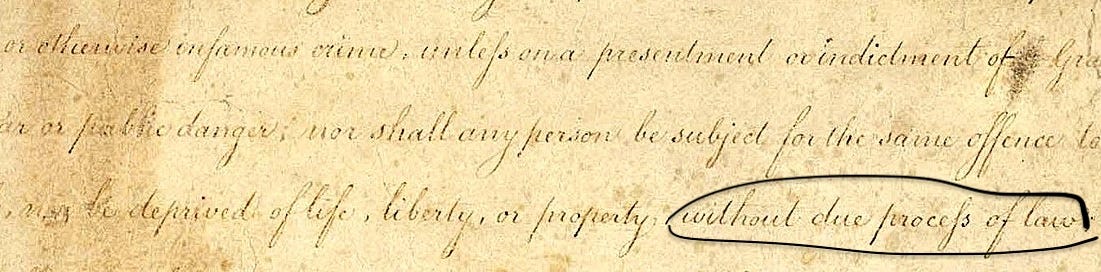 or otherwise infamous crime, unleſs on a presentment or indictment of Gra
ar or public danger; nor shall any person be subject for the same offence to
, nor be deprived of life, liberty, or property, without due proceſs of law;